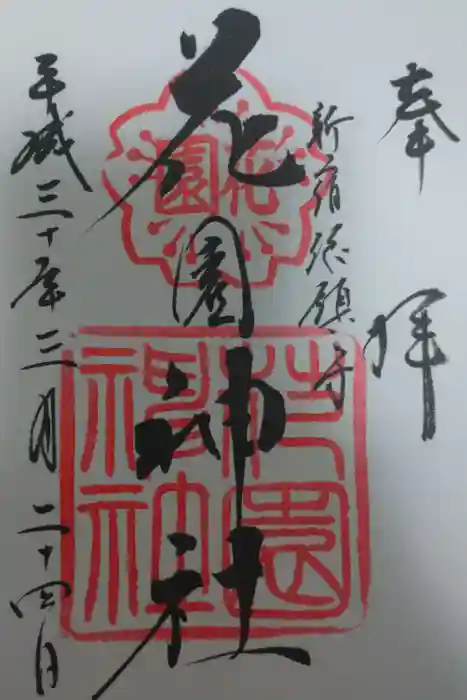 奉拝
新宿総鎮守
花園神社
花園
花園神社
平成三十年三月二十四日